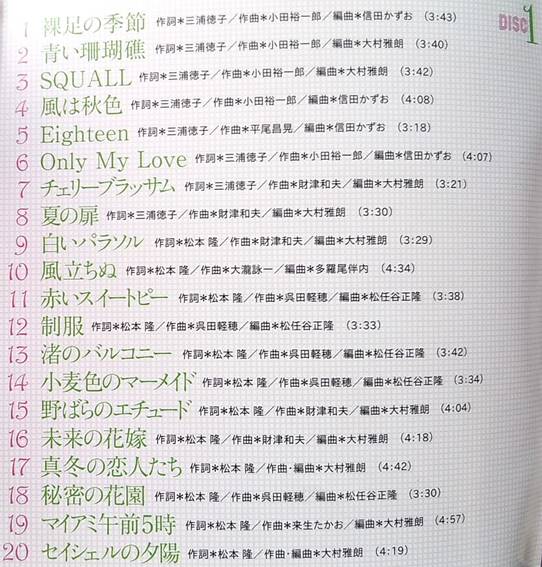 DISC 1
1 裸足の季節 作詞*三浦徳子/作曲*小田裕一郎/編曲*信田かずお (3:43)
2 青い珊瑚礁 作詞*三浦徳子/作曲*小田裕一郎/編曲*大村雅朗 (3:40)
3 SQUALL 作詞*三浦徳子/作曲*小田裕一郎/編曲*大村雅朗 (3:42)
4 風は秋色 作詞*三浦徳子/作曲*小田裕一郎/編曲*信田かずお (4:08)
5 Eighteen 作詞*三浦徳子/作曲*平尾昌晃/編曲*信田かずお (3:18)
6 Only My Love 作詞*三浦徳子/作曲*小田裕一郎/編曲*信田かずお (4:07)
7 チェリーブラッサム 作詞*三浦徳子/作曲*財津和夫/編曲*大村雅朗 (3:21)
8 夏の扉 作詞*三浦徳子/作曲*財津和夫/編曲*大村雅朗 (3:30)
9 白いパラソル 作詞*松本 隆/作曲*財津和夫/編曲*大村雅朗 (3:29)
10 風立ちぬ 作詞*松本 隆/作曲*大瀧詠一/編曲*多羅尾伴内 (4:34)
11 赤いスイートピー 作詞*松本 隆/作曲*呉田軽穂/編曲*松任谷正隆 (3:38)
12 制服 作詞*松本 隆/作曲*呉田軽穂/編曲*松任谷正隆 (3:33)
13 渚のバルコニー 作詞*松本 隆/作曲*呉田軽穂/編曲*松任谷正隆 (3:42)
14 小麦色のマーメイド 作詞*松本 隆/作曲*呉田軽穂/編曲*松任谷正隆 (3:34)
15 野ばらのエチュード 作詞*松本 隆/作曲*財津和夫/編曲*大村雅朗 (4:04)
16 未来の花嫁 作詞*松本 隆/作曲*財津和夫/編曲*大村雅朗 (4:18)
17 真冬の恋人たち 作詞*松本 隆/作曲・編曲*大村雅朗 (4:42)
18 秘密の花園 作詞*松本 隆/作曲*呉田軽穂/編曲*松任谷正隆 (3:30)
19 マイアミ午前5時 作詞*松本 隆/作曲*来生たかお/編曲*大村雅朗 (4:57)
20 セイシェルの夕陽 作詞*松本 隆/作曲・編曲*大村雅朗 (4:19)